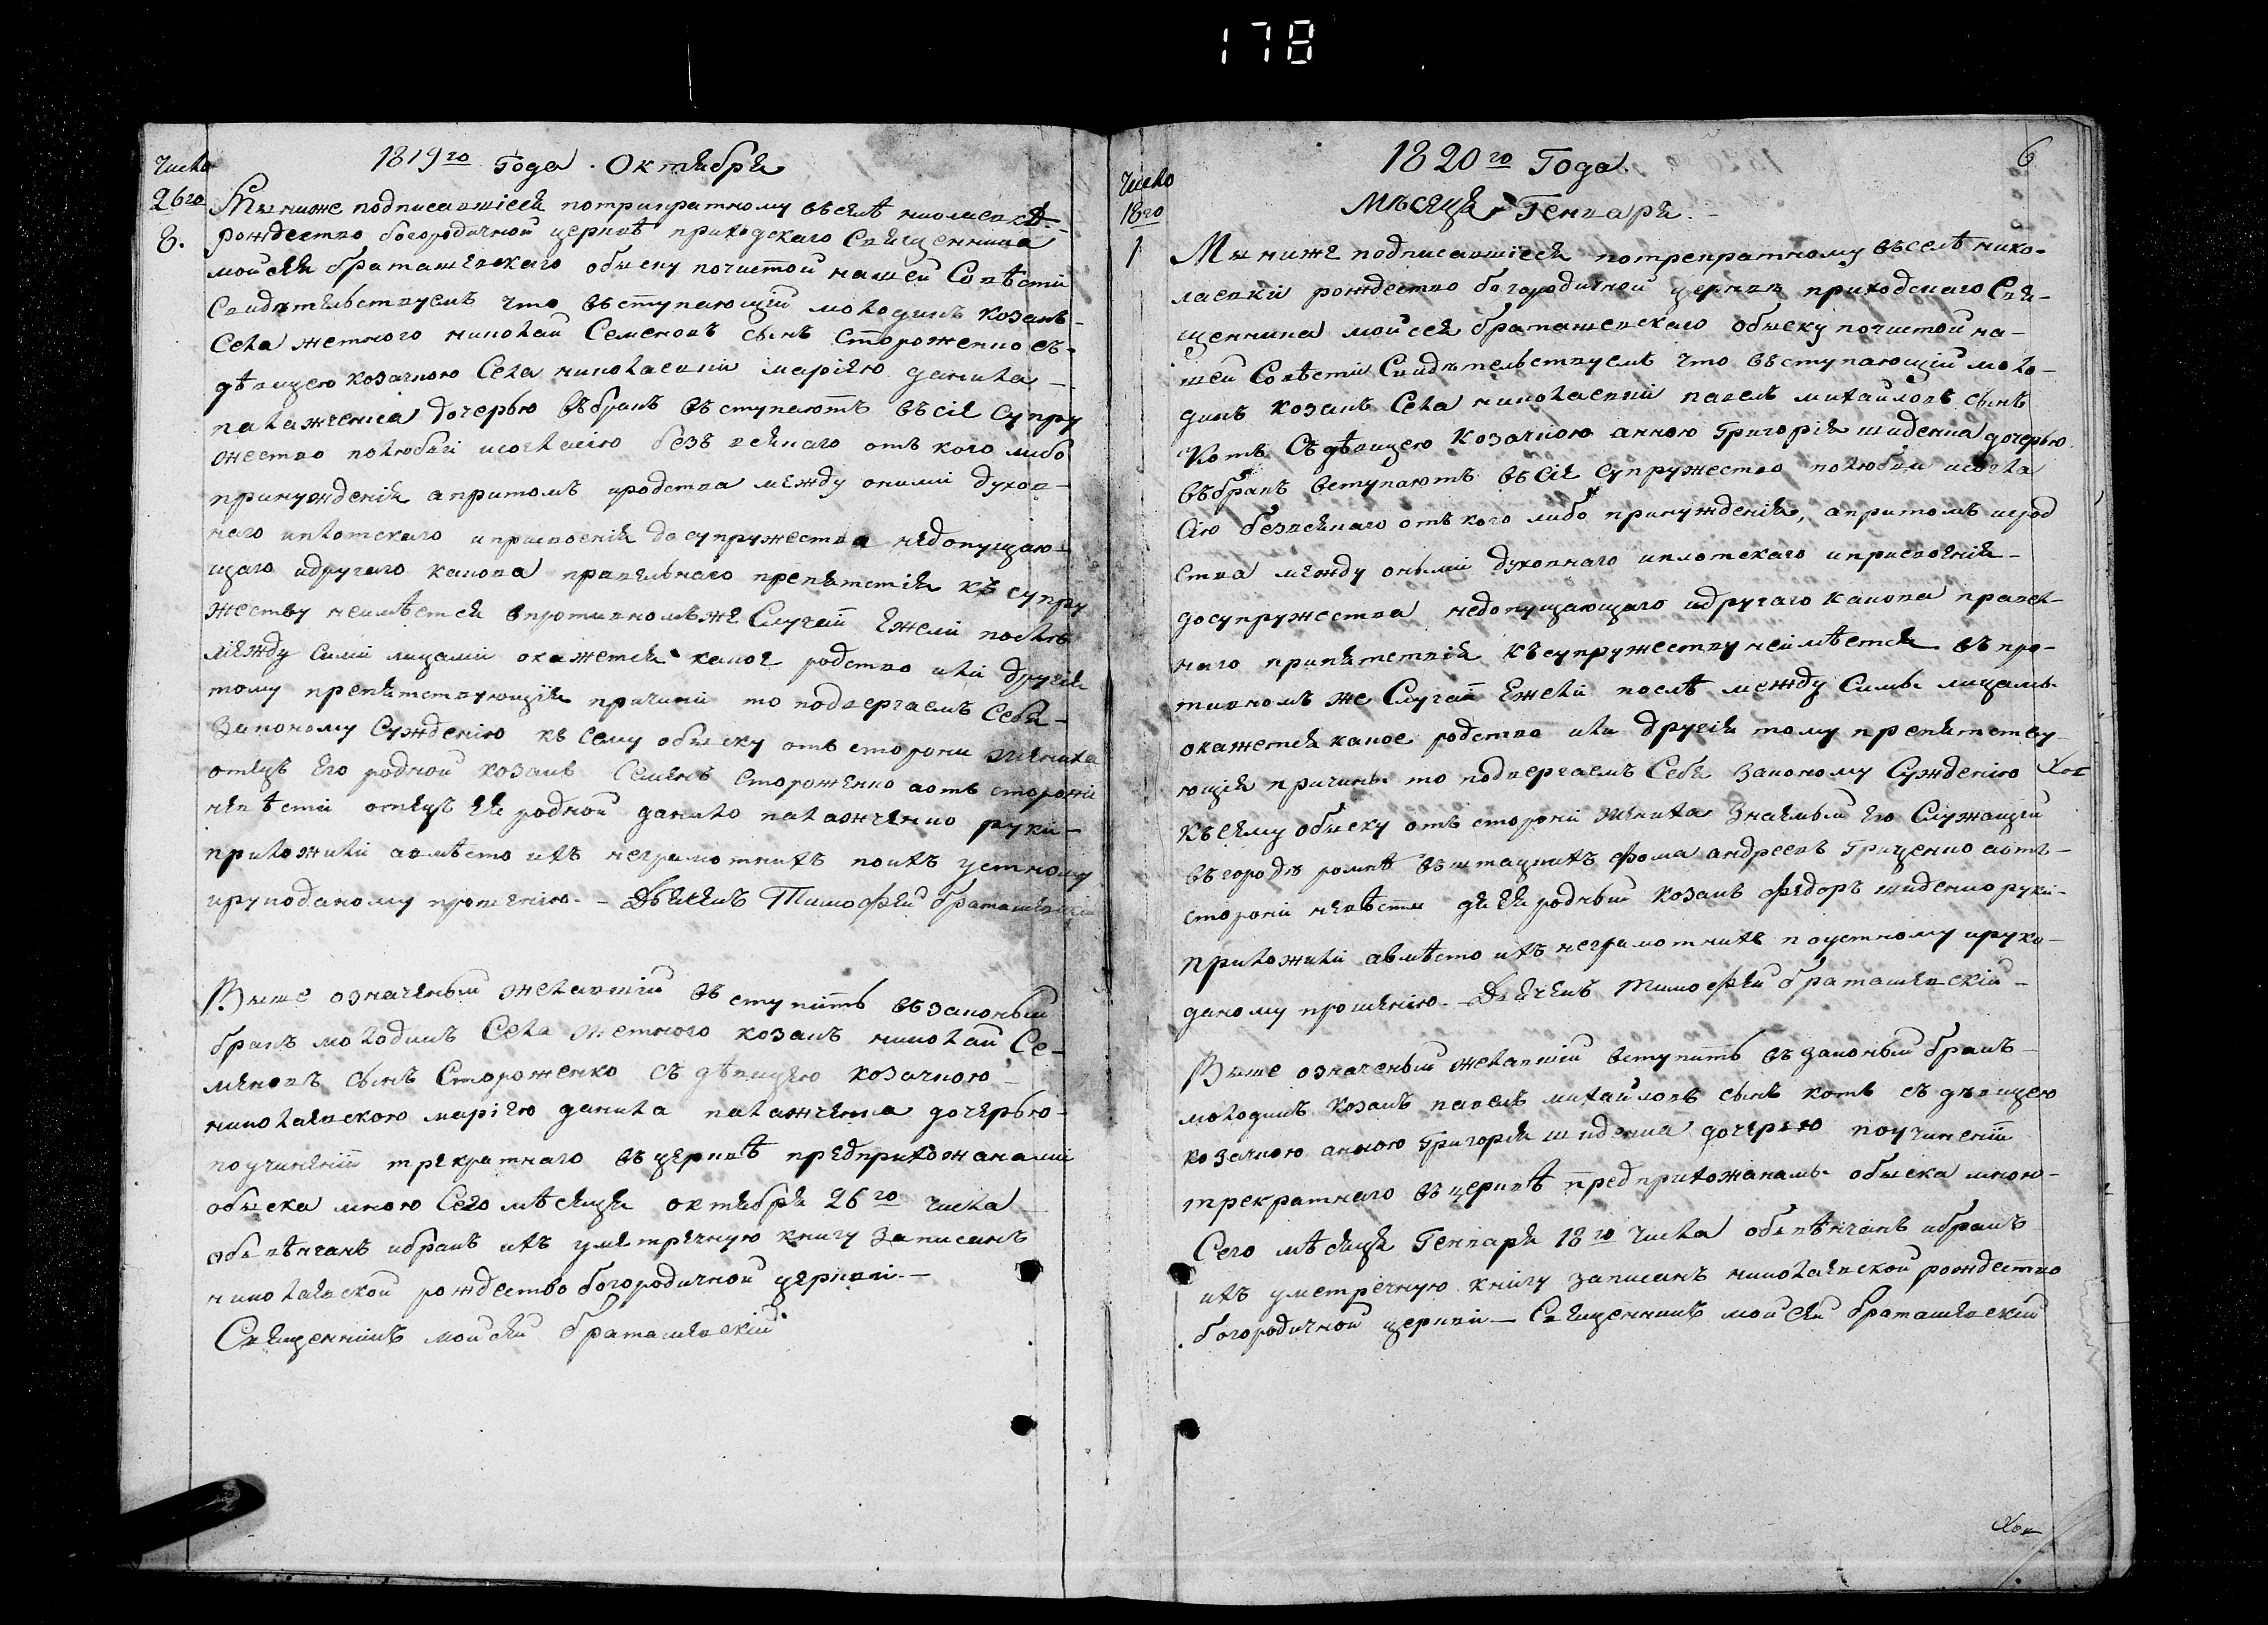 178
число
1819го Года. Октября
26го
8.
Мы ниже подписавшіеся потрикратному въселѣ николаевкѣ
рождество богородичной церквѣ приходскаго Священника
мойсея браташевскаго обыску почистой нашей Совѣсти
Свидѣтельствуемъ что въступающій молодикъ козакъ
Села жетного николай Семеновъ сынъ Стороженко съ
дѣвицею козачкою Села николаевки марією данила
палажченка дочерью въбракъ въступаютъ въсіе супру
жество полюбви исогласію безъ всякаго отъ кого либо
принужденія апритомъ иродства между оними духов-
наго иплотскаго иприсвоенія досупружества недопущаю-
щаго идругаго какова правильнаго препятстія къ супру
жеству неимѣется впротивномъже Случаѣ Ежели послѣ
между Сими лицами окажется какое родство или другія
тому препятствующія причини то подвергаемъ Себя-
законому Сужденію къ Сему обыску отъ стороны жениха
отецъ Его родной козакъ Семенъ Стороженко аотъ стороны
невѣсти отецъ Ея родной данило палажченко руки-
приложили авмѣсто ихъ неграмотнихъ поихъ устному
ируподаному прошенію.- Дьячекъ Тимофей браташевскій
Выше означеный желавшій въступить въ законый
бракъ молодикъ Села жетного козакъ николай Се-
меновъ сынъ Стороженко съ дѣвицею козачкою-
николаевскою марією данила палажченка дочерью-
поучиненіи трекратнаго въ церквѣ предприхожанами
обыска мною Сего мѣсяця октября 26го числа
обвѣнчанъ ибракъ ихъ уметричную книгу записанъ
николаевской рождество богородичной церкви.-
Священникъ мойсей браташевскій
6
1820го Года
число
18го
Мѣсяця Генваря.-
1
Мы ниже подписавшіеся потрекратному въселѣ нико-
лаевки рождество богородичной церкви приходскаго Свя-
щенника мойсея браташевскаго обыску почистой на-
шей Совѣсти Свидѣтельствуемъ что въступающій моло-
дикъ козакъ Села николаевки павелъ михайловъ сынъ
Котъ Съ дѣвицею козачкою анною Григорія шиденка дочерью
въбракъ вступаютъ въ Сіе супружество полюбви исогла
Сію безвсякаго отъ кого либо принужденія, апритомъ ирод
ства между оными духовнаго иплотскаго иприсвоенія-
досупружества недопущающаго идругаго какова правил-
наго припятствія къ супружеству неимѣется въ про-
тивномъ же Случаѣ Ежели послѣ между Симы лицамы
окажется какое родство или другія тому препятству-
ющія причины то подвергаемъ Себя законому Сужденію
къ сему обыску отъ стороны жениха знаемый Его Служащій
въ городѣ ромнѣ въ штацкихъ Фома андреевъ Гриценко аотъ-
стороны невѣсти дядя родный козакъ Федоръ шиденко руки-
приложили авмѣсто ихъ неграмотнихъ поустному ируко-
даному прошенію.- Дьячекъ Тимофей браташевскій-
Выше означеный желавшій вступить въ законый бракъ-
молодикъ козакъ павелъ михайловъ сынъ котъ съ дѣвицею
козачкою анною Григорія шиденка дочерью поучиненіи
трекратнаго въ церквѣ предприхожанамы обыска мною-
Сего мѣсяця Генваря 18го числа обвѣнчанъ ибракъ
ихъ уметречную книгу записанъ николаевской рождество
богородичной церкви- Священникъ мойсей браташевскій